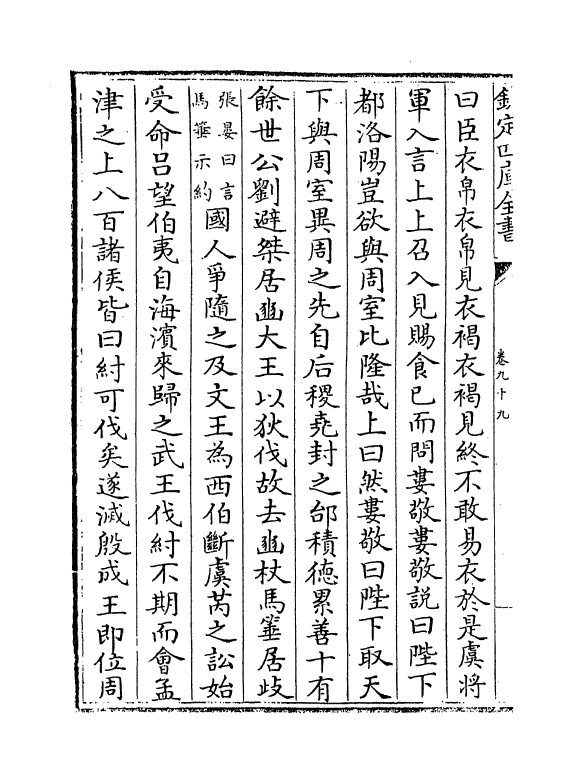 欽定四庫全書
卷九十九
曰臣衣帛衣帛見衣褐衣褐見終不敢易衣於是虞將
軍入言上上召入見賜食已而問婁敬婁敬説曰陛下
都洛陽豈欲與周室比隆哉上曰然婁敬曰陛下取天
下與周室異周之先自后稷堯封之邰積徳累善十有
餘世公劉避桀居豳大王以狄伐故去豳杖馬箠居歧
張晏曰言
馬箠示約
國人爭隨之及文王為西伯斷虞芮之訟始
受命吕望伯夷自海濱來歸之武王伐紂不期而會孟
津之上八百諸侯皆曰紂可伐矣遂滅殷成王即位周